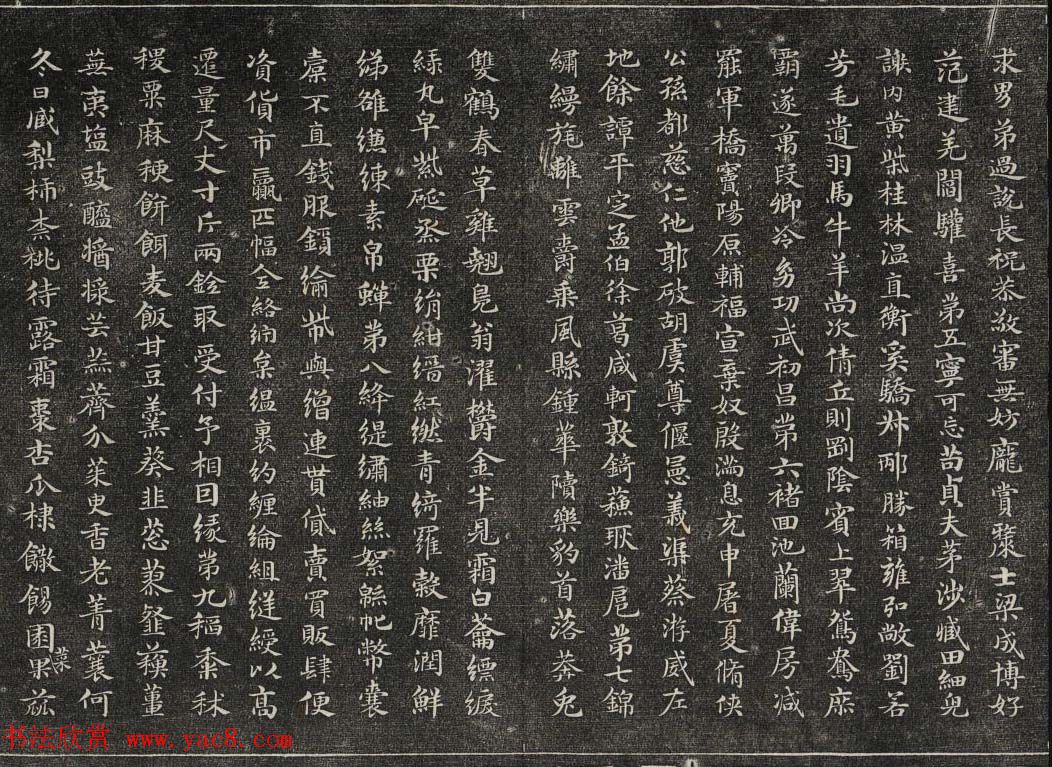 求男弟過說長祝恭敬審無妨龐賞士梁成博好
范建羌閻驩喜第五寧可忘苟貞夫茅涉臧田細兒
謝內黃柴桂林溫直衡奚驕叔邴勝箱雍弘敞劉若
芳毛遺羽馬牛羊尚次倩丘則劉陰賓上翠鴛鴦庶
霸遂萬段卿泠幼功武初昌第六褚回池蘭偉房減
罷軍橋竇陽原輔福宣棄奴殷滿息充申屠夏脩俠
公孫都慈仁他郭破胡虞尊偃憲義渠蔡游威左
地餘譚平定孟伯徐葛咸軻敦錡蘇耿潘扈第七錦
繡縵旄離雲爵乘風縣鍾華隤樂豹首落莽兔
雙鶴春草雞翹鳧翁濯鬱金半見霜白蘥縹綟
綠丸皁紫硟烝栗絹紺縉紅繎青綺羅縠靡潤鮮
綈雒縑練素帛蟬第八絳緹繡紬絲絮緜帊幣囊
橐不直錢服鎖緰幋與繒連貰貸賣買販肆便
資貨市贏匹幅全絡納枲縕裹約纏綸組縌綬以高
遷量尺丈寸斤兩銓取受付予相因緣第九稻黍秫
稷粟麻稉餅餌麦飯甘豆羹葵韭葱蓼韰蘇薑
蕪荑塩豉醯醬漿芸蒜薺介茱臾香老菁蘘何
冬日臧梨柿柰桃待露霜棗杏瓜棣饊餳園菜果蓏
书法欣赏 www.yac8.com